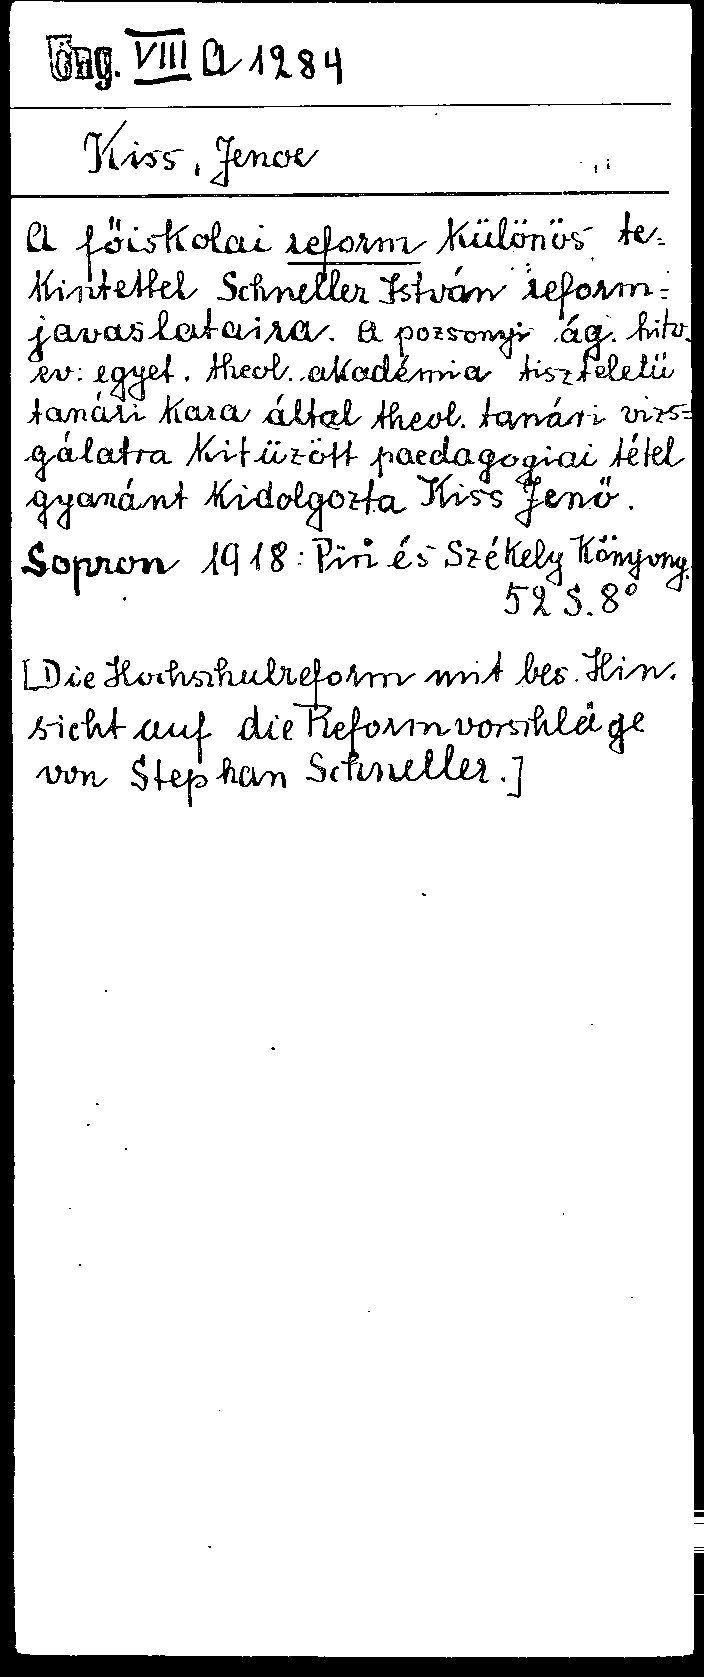 Ung. VIII A 1284
Kiss, Jenoe
A főiskolai reform különös te-
kintettel Schneller István reform-
javaslataira. A pozsonyi ág. hitv.
ev. egyet. theol. akadémia tiszteletü
tanári kara által theol. tanári vizs-
gálatra kitüzött paedagogiai tétel
gyanánt kidolgozta Kiss Jenő.
Sopron 1918: Piri és Székely Könyvny.
52 S. 8°
[Die Hochschulreform mit bes. Hin-
sicht auf die Reformvorschläge
von Stephan Schneller.]